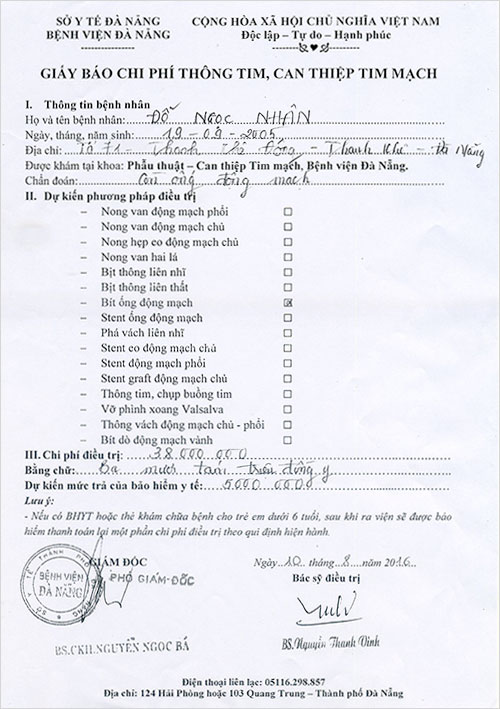 SỞ Y TẾ ĐÀ NẴNG
BỆNH VIỆN ĐÀ NẴNG
CỘNG HÒA XÃ HỘI CHỦ NGHĨA VIỆT NAM
Độc lập – Tự do – Hạnh phúc
GIẤY BÁO CHI PHÍ THÔNG TIM, CAN THIỆP TIM MẠCH
I. Thông tin bệnh nhân
Họ và tên bệnh nhân: ĐỖ NGỌC NHÂN
Ngày, tháng, năm sinh: 19-09-2005
Địa chỉ: Tổ 71 - Thanh Khê Đông - Thanh Khê - Đà Nẵng
Được khám tại khoa: Phẫu thuật – Can thiệp Tim mạch, Bệnh viện Đà Nẵng.
Chẩn đoán: Còn ống động mạch
II. Dự kiến phương pháp điều trị
– Nong van động mạch phổi ☐
– Nong van động mạch chủ ☐
– Nong hẹp eo động mạch chủ ☐
– Nong van hai lá ☐
– Bịt thông liên nhĩ ☐
– Bịt thông liên thất ☐
– Bít ống động mạch ☒
– Stent ống động mạch ☐
– Phá vách liên nhĩ ☐
– Stent eo động mạch chủ ☐
– Stent động mạch phổi ☐
– Stent graft động mạch chủ ☐
– Thông tim, chụp buồng tim ☐
– Vỡ phình xoang Valsalva ☐
– Thông vách động mạch chủ - phổi ☐
– Bít dò động mạch vành ☐
III. Chi phí điều trị: 38 000 000
Bằng chữ: Ba mươi tám triệu đồng y
Dự kiến mức trả của bảo hiểm y tế: 5000 000
Lưu ý:
- Nếu có BHYT hoặc thẻ khám chữa bệnh cho trẻ em dưới 6 tuổi, sau khi ra viện sẽ được bảo
hiểm thanh toán lại một phần chi phí điều trị theo qui định hiện hành.
GIÁM ĐỐC
PHÓ GIÁM ĐỐC
BỆNH VIỆN
ĐÀ NẴNG
BS.CKII.NGUYỄN NGỌC BÁ
Ngày 10 tháng 8 /2016
Bác sỹ điều trị
BS.Nguyễn Thanh Vinh
Điện thoại liên lạc: 05116.298.857
Địa chỉ: 124 Hải Phòng hoặc 103 Quang Trung – Thành phố Đà Nẵng